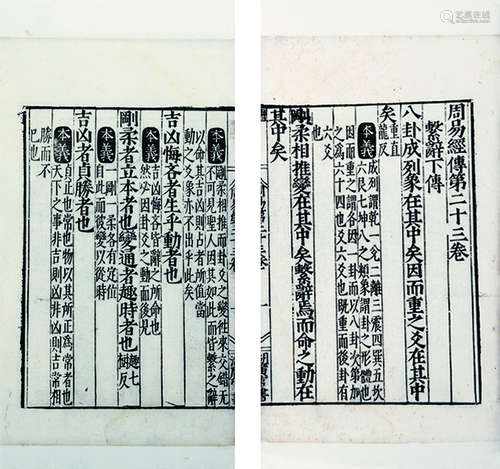 周易經傳第二十三卷
繫辭下傳
八卦成列象在其中矣因而重之爻在其中
矣
重直
龍反
本義
成列謂乾一兌二離三震四巽五坎
六艮七坤八之類象謂卦之形體也
因而重之謂各因一卦而以八卦次第加
之為六十四也爻六爻也既重而後卦有
六爻
也
剛柔相推變在其中矣繫辭焉而命之動在
其中矣
本義
剛柔相推而卦爻之變往來交錯无
不可見聖人因其如此而皆繫之辭
以命其吉凶則占者所值當
動之爻象亦不出乎此矣
吉凶悔吝者生乎動者也
本義
吉凶悔吝皆辭之所命也
然必因卦爻之動而後見
剛柔者立本者也變通者趣時者也
趣七
樹反
本義
一剛一柔各有定位
自此而彼變以從時
吉凶者貞勝者也
本義
貞正也常也物以其所正為常者也
天下之事非吉則凶非凶則吉常相
勝而不
已也